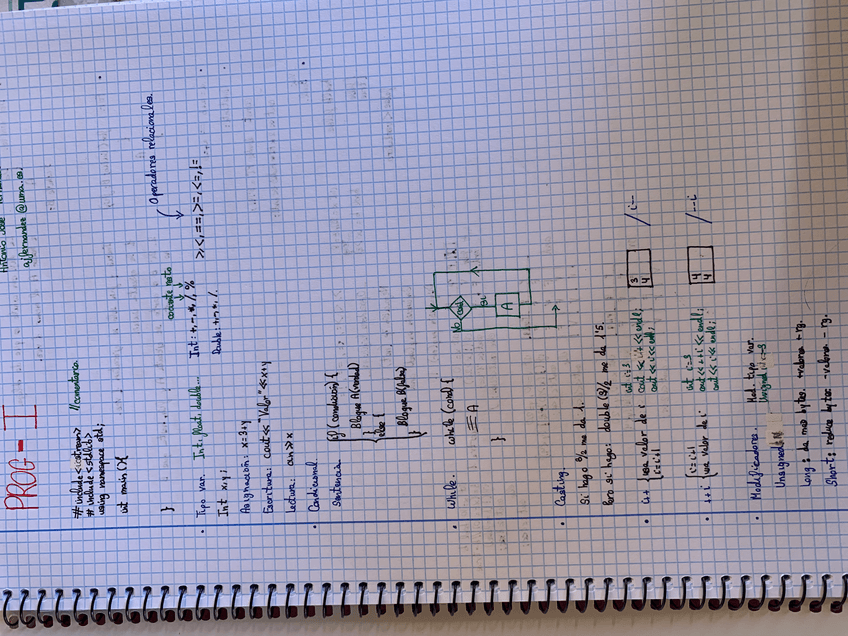 PROG - I
Antonio José
ajfernandez@uma.es
# include <iostream> //comentario
# include <stdlib>
using namespace std;
int main(){
}
cociente resto
Operadores relacionales
• Tipo var. Int, float, double... Int: +,-,*,/,% >,<,==,>=,<=,!=
Int x,y; Double: +,-,*,/.
Asignación: x=3+y
Escritura: cout<<"Valor"<<x+y
Lectura: cin>>x
• Condicional.
Sentencia if (condición) {
Bloque A(verdad)
}else {
Bloque B(falso)
}
• While. while (cond) {
≡ A
}
No cond
Sí
A
• Casting.
Si hago 3/2 me da 1.
Pero si hago: double (3)/2 me da 1'5.
• i++ { usa valor de i int i=3 3 / i--
i=i+1 cout << i++ << endl; 4
cout << i << endl;
• ++i { i=i+1 int i=3 4 / --i
usa valor de i cout << ++i << endl; 4
cout << i << endl;
• Modificadores. Mod. tipo var.
Unsigned: N Unsigned i=3
Long: da mas bytes. +valores + rg.
Short: reduce bytes -valores - rg.